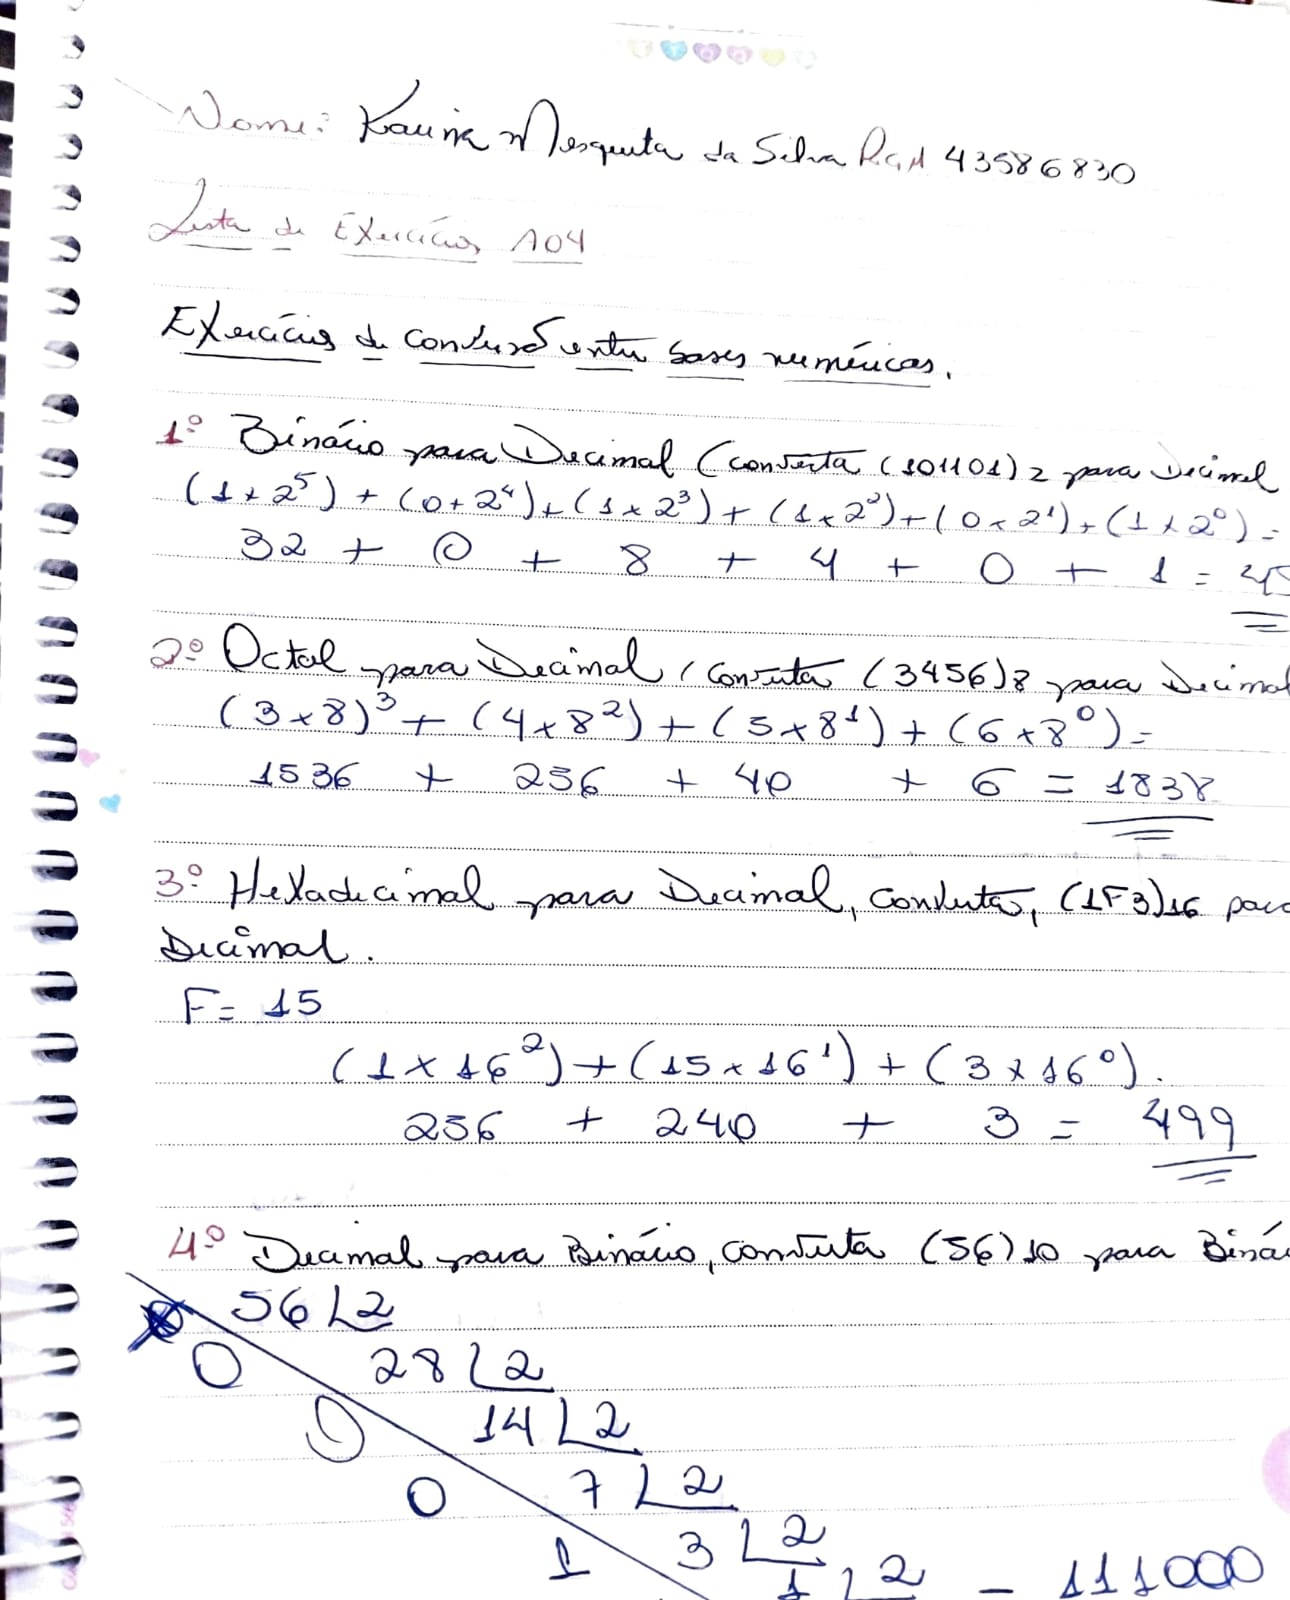 Nome: Karina Mesquita da Silva RGM 43586830
Lista de Exercícios A04
Exercícios de conversão entre bases numéricas.
1º Binário para Decimal (converta (101101)2 para Decimal
(1 x 2⁵) + (0 + 2⁴) + (1 x 2³) + (1 x 2²) + (0 x 2¹) + (1 x 2⁰) =
32 + 0 + 8 + 4 + 0 + 1 = 45
2º Octal para Decimal, converta (3456)8 para Decimal
(3 x 8)³ + (4 x 8²) + (5 x 8¹) + (6 x 8⁰) =
1536 + 256 + 40 + 6 = 1838
3º Hexadecimal para Decimal, converta, (1F3)16 para
Decimal.
F = 15
(1 x 16²) + (15 x 16¹) + (3 x 16⁰).
256 + 240 + 3 = 499
4º Decimal para Binário, converta (56)10 para Biná
56 2
0 28 2
0 14 2
0 7 2
1 3 2
1 2 - 111000